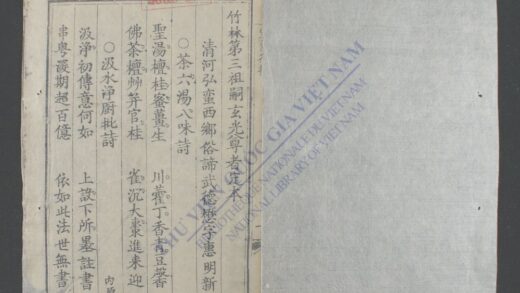 竹林第三祖嗣玄光尊者定本
清河弘蛮西鄉俗諦武德懋字惠明新
○茶六湯八味詩
聖湯檀桂蜜薑生 川藿丁香青豆馨
佛茶檀艸芽官桂 雀沉大棗進來迎
○汲水净厨批詩
汲净初傳意何如 上設下所墨註書
串粤漫期超百億 依如此法世無書
THƯ VIỆN QUỐC GIA VIỆT NAM
BIBLIOTHEQUE NATIONALE DU VIETNAM
NATIONAL LIBRARY OF VIETNAM